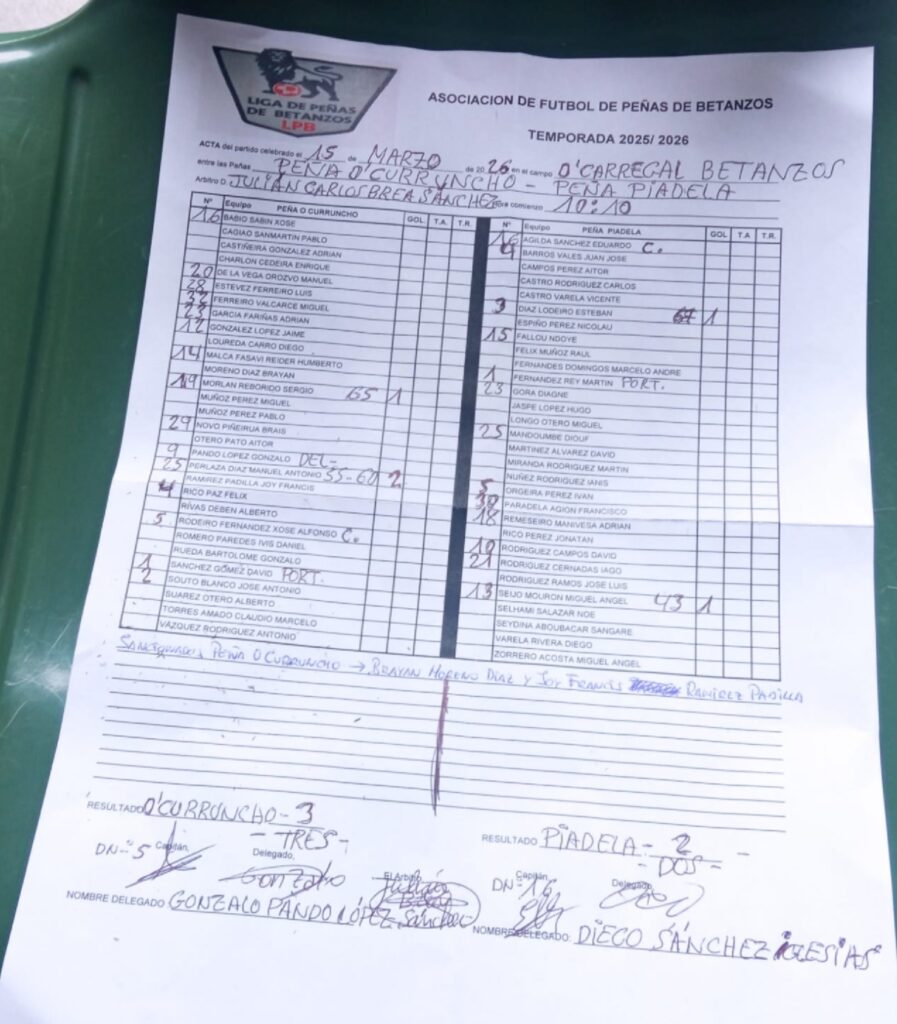 LIGA DE PEÑAS
DE BETANZOS
LPB
ASOCIACION DE FUTBOL DE PEÑAS DE BETANZOS
TEMPORADA 2025/ 2026
ACTA del partido celebrado el 15 de MARZO de 2026 en el campo O'CARREGAL BETANZOS
entre las Peñas PEÑA O'CURRUNCHO - PEÑA PIADELA
Arbitro D. JULIÁN CARLOS BREA SÁNCHEZ Hora comienzo 10:10
Nº Equipo PEÑA O CURRUNCHO GOL T.A. T.R.
16 BABIO SABIN XOSE
CAGIAO SANMARTIN PABLO
CASTIÑEIRA GONZALEZ ADRIAN
CHARLON CEDEIRA ENRIQUE
20 DE LA VEGA OROZVO MANUEL
28 ESTEVEZ FERREIRO LUIS
32 FERREIRO VALCARCE MIGUEL
23 GARCIA FARIÑAS ADRIAN
12 GONZALEZ LOPEZ JAIME
LOUREDA CARRO DIEGO
14 MALCA FASAVI REIDER HUMBERTO
MORENO DIAZ BRAYAN
19 MORLAN REBORIDO SERGIO 65 1
MUÑOZ PEREZ MIGUEL
MUÑOZ PEREZ PABLO
29 NOVO PIÑEIRUA BRAIS
OTERO PATO AITOR
9 PANDO LOPEZ GONZALO DEL-
25 PERLAZA DIAZ MANUEL ANTONIO 55-60 2
RAMIREZ PADILLA JOY FRANCIS
4 RICO PAZ FELIX
RIVAS DEBEN ALBERTO
5 RODEIRO FERNANDEZ XOSE ALFONSO C.
ROMERO PAREDES IVIS DANIEL
RUEDA BARTOLOME GONZALO
1 SANCHEZ GOMEZ DAVID PORT.
2 SOUTO BLANCO JOSE ANTONIO
SUAREZ OTERO ALBERTO
TORRES AMADO CLAUDIO MARCELO
VAZQUEZ RODRIGUEZ ANTONIO
Nº Equipo PEÑA PIADELA GOL T.A. T.R.
16 AGILDA SANCHEZ EDUARDO C.
4 BARROS VALES JUAN JOSE
CAMPOS PEREZ AITOR
CASTRO RODRIGUEZ CARLOS
CASTRO VARELA VICENTE
9 DIAZ LODEIRO ESTEBAN 67 1
ESPIÑO PEREZ NICOLAU
15 FALLOU NDOYE
FELIX MUÑOZ RAUL
FERNANDES DOMINGOS MARCELO ANDRE
1 FERNANDEZ REY MARTIN PORT.
23 GORA DIAGNE
JASPE LOPEZ HUGO
LONGO OTERO MIGUEL
25 MANDOUMBE DIOUF
MARTINEZ ALVAREZ DAVID
MIRANDA RODRIGUEZ MARTIN
NUÑEZ RODRIGUEZ IANIS
5 ORGEIRA PEREZ IVAN
30 PARADELA AGION FRANCISCO
18 REMESEIRO MANIVESA ADRIAN
RICO PEREZ JONATAN
10 RODRIGUEZ CAMPOS DAVID
21 RODRIGUEZ CERNADAS IAGO
RODRIGUEZ RAMOS JOSE LUIS
13 SEIJO MOURON MIGUEL ANGEL 43 1
SELHAMI SALAZAR NOE
SEYDINA ABOUBACAR SANGARE
VARELA RIVERA DIEGO
ZORRERO ACOSTA MIGUEL ANGEL
PEÑA O CURRUNCHO → BRAYAN MORENO DIAZ Y JOY FRANCIS RAMIREZ PADILLA
RESULTADO O'CURRUNCHO - 3
- TRES -
RESULTADO PIADELA - 2
- DOS -
DNº 5 Capitán, Delegado, El Arbitro DNº 16 Capitán, Delegado,
Gonzalo
Julián Brea Sánchez
NOMBRE DELEGADO GONZALO PANDO LÓPEZ
NOMBRE DELEGADO: DIEGO SÁNCHEZ IGLESIAS